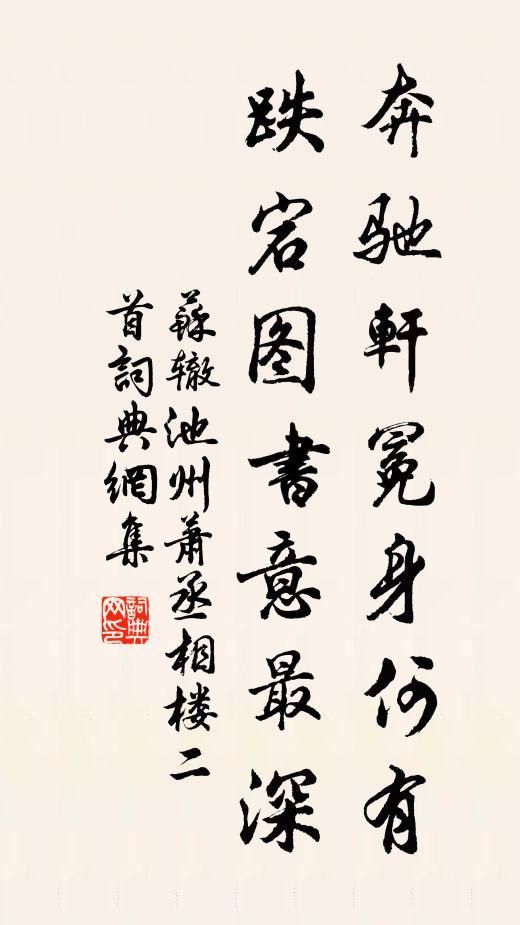 奔驰軒冕身何有
跌宕图書意最深
蘇辙池州萧丞相楼二
首詞典網集
詞典
网印